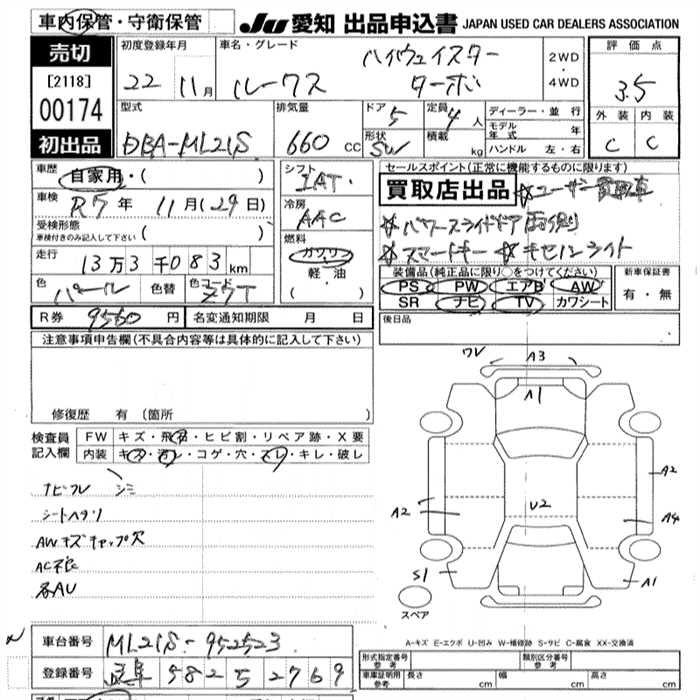 車内保管・守衛保管
JU 愛知 出品申込書 JAPAN USED CAR DEALERS ASSOCIATION
売切
[2118]
00174
初出品
初度登録年月
22 11月
車名・グレード
ハイウェイスター
ルークス ターボ
2WD
・
4WD
評価点
3.5
外装 内装
C C
型式
DBA-ML21S
排気量
660 CC
ドア 5
形状
定員 4人
積載 kg
ディーラー・並行
モデル年式 年
ハンドル 左・右
車歴 自家用・( )
車検 R7年 11月(29日)
受検形態
車検付きのみ記入して下さい ( )
走行 13万3千083km
色 パール 色替 色コード ZVT
シフト
IAT
冷房
AAC
燃料
ガソリン
軽・油
( )
セールスポイント(正常に機能するものに限ります)
買取店出品 ☆ユーザー買取車
☆パワースライドドア両側
☆スマートキー ☆キセノンライト
装備品(純正品に限り○をつけてください) 新車保証書
PS PW エアB AW
SR ナビ TV カワシート
有・無
後日品
R券 9560円 名変通知期限 月 日
注意事項申告欄(不具合内容等は具体的に記入して下さい)
修復歴 有 (箇所
検査員記入欄
FW キズ・飛石・ヒビ割・リペア跡・X要
内装 キズ・汚レ・コゲ・穴・スレ・キレ・破レ
ナビーフレ シミ
シートヘタリ
AWキズキャップ欠
AC不良
各AU
ワレ A3
A1
A2
U2
A2
A4
S1
A1
スペア
A-キズ E-エクボ U-凹み W-補修跡 S-サビ C-腐食 XX-交換済
車台番号 ML21S-952523
登録番号 岐阜 582 5 2769
形式指定番号
参考
類別区分番号
参考
車庫証明用
参考
長さ cm 幅 cm 高さ cm